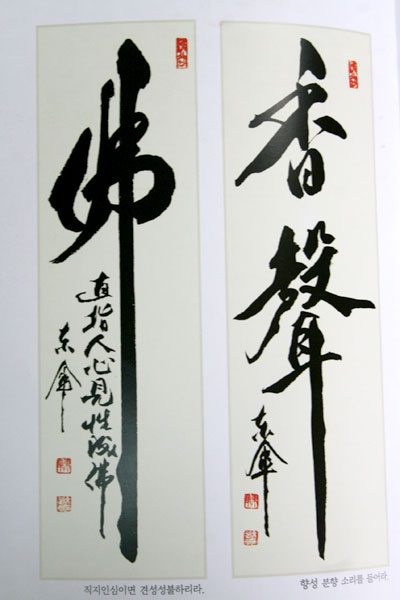 佛
直指人心見性成佛
직지인심이면 견성성불하리라.
香聲
향성 분향 소리를 들어라.